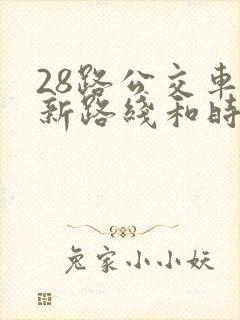 28路公交車
新路綫和時
兔家小小妖